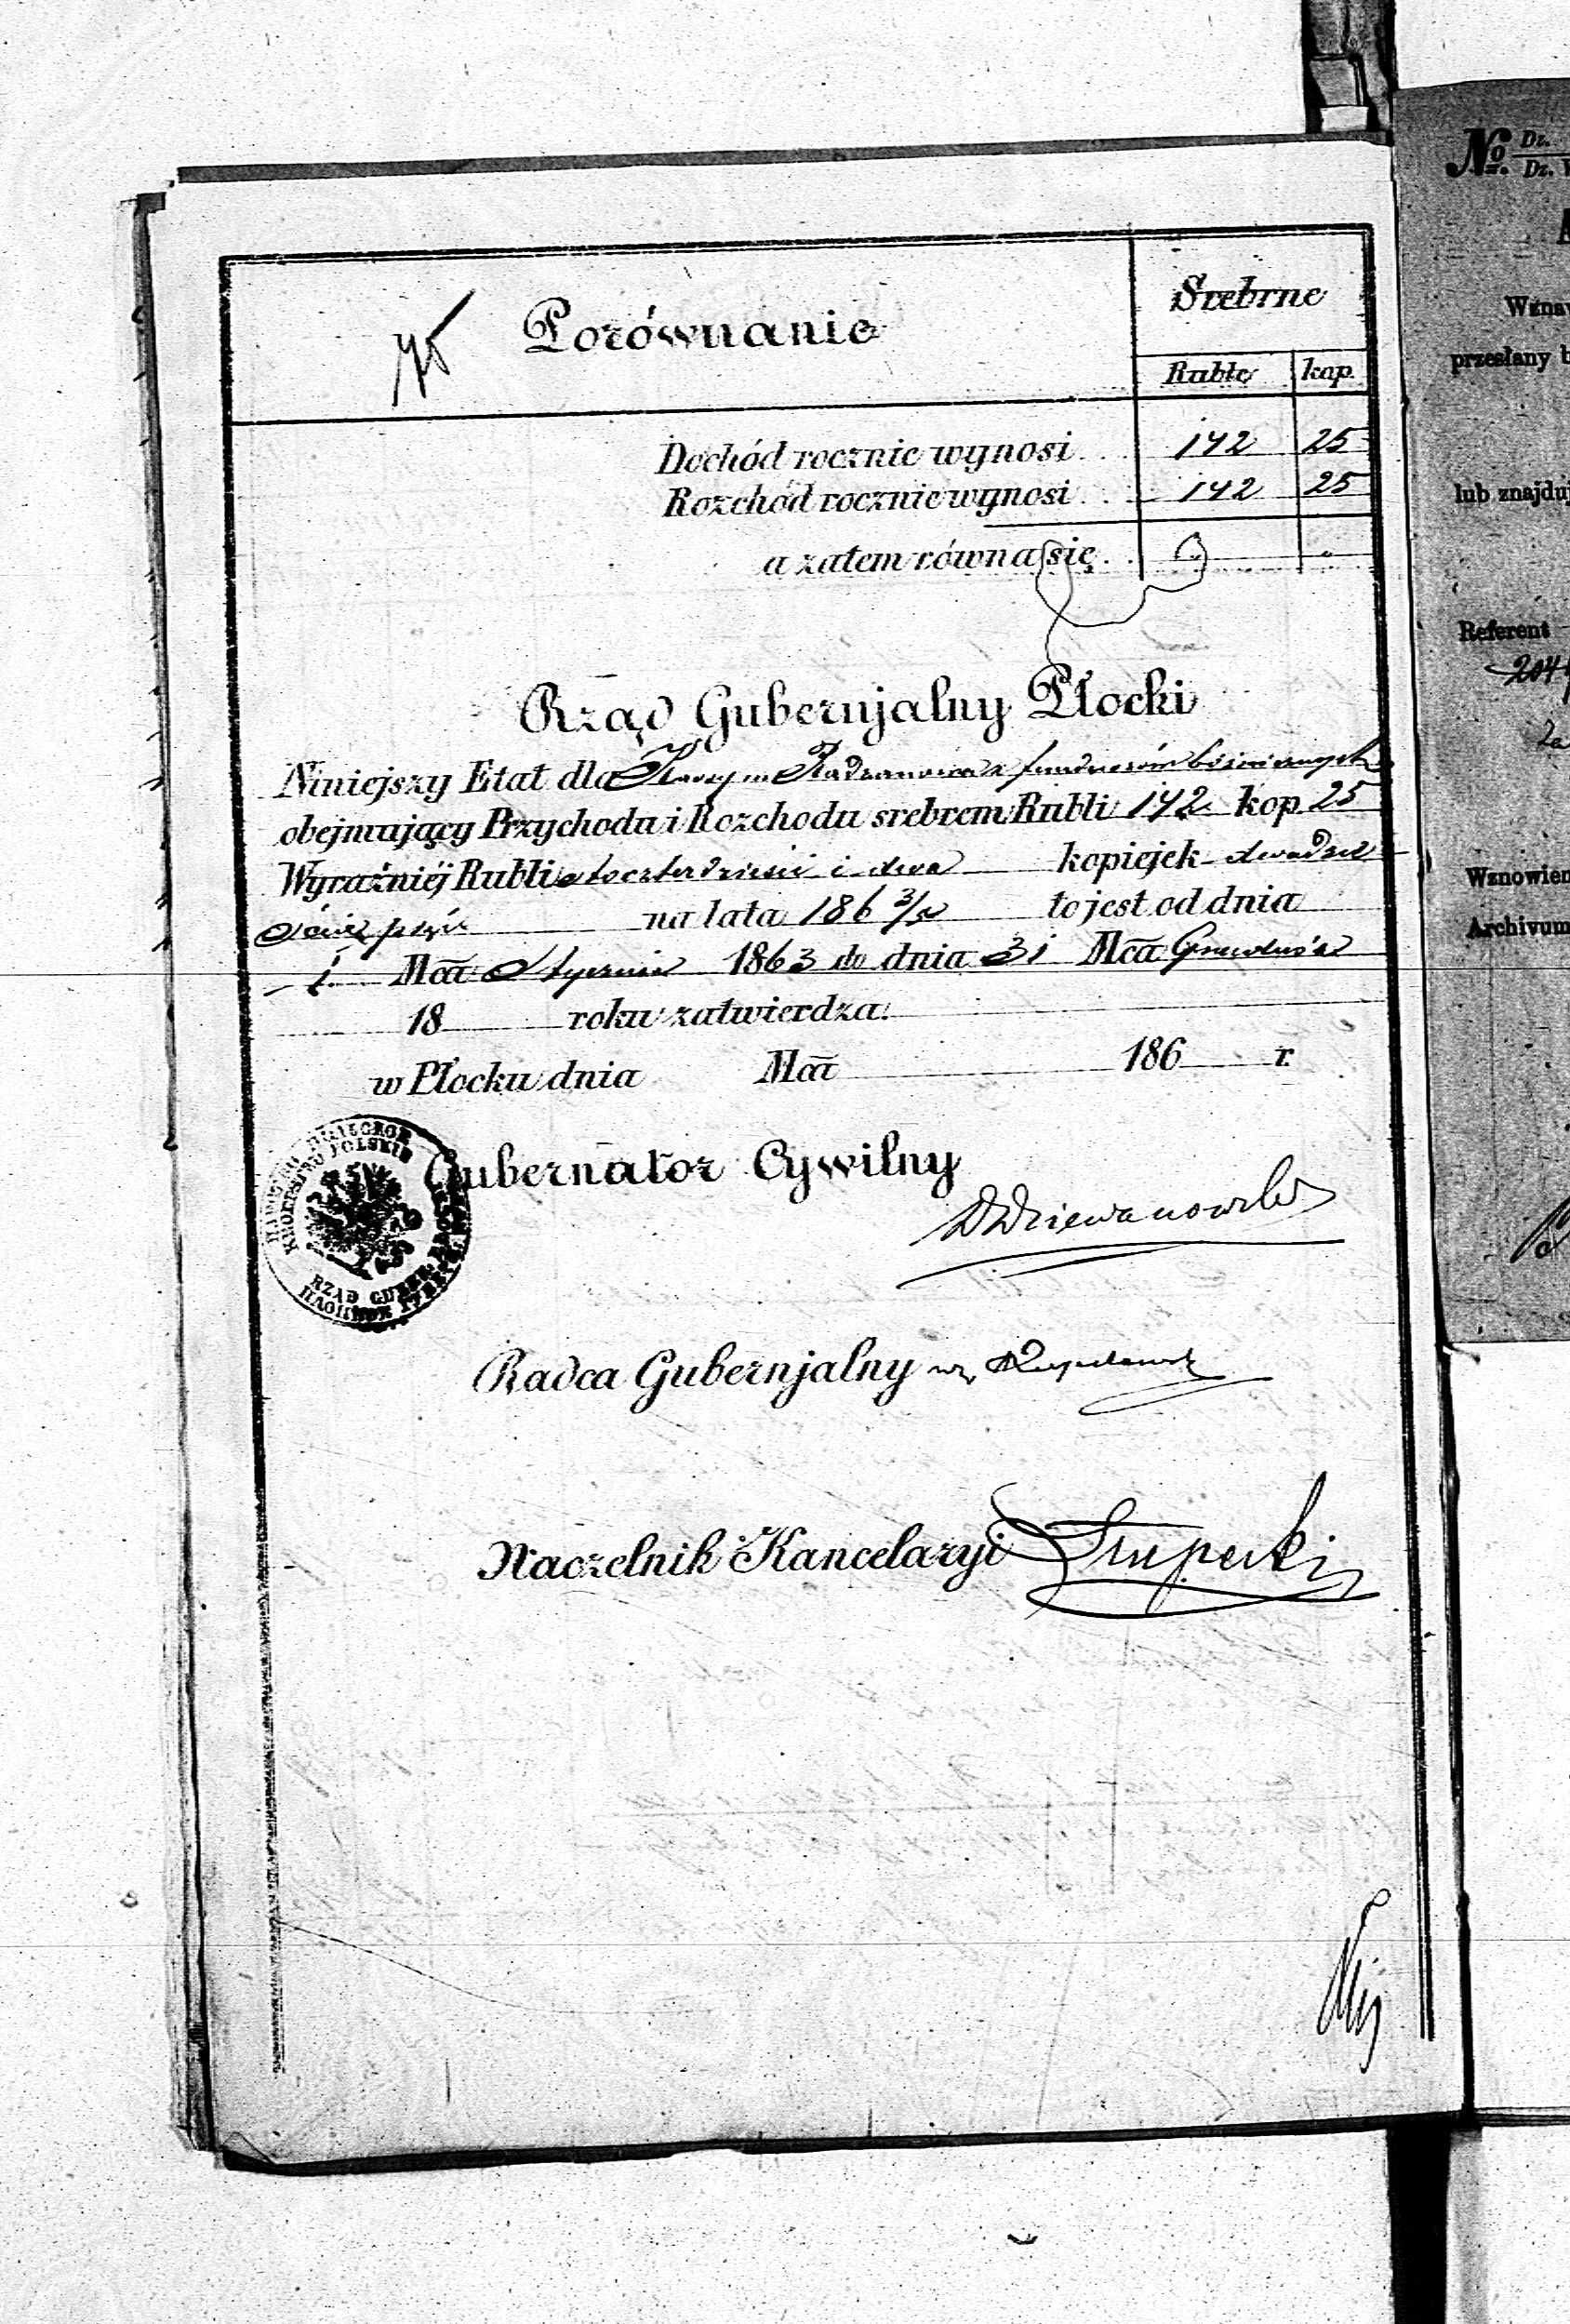 Porównanie
Srebrne
Ruble kop.
Dochód rocznie wynosi 142 25
Rozchód rocznie wynosi 142 25
a zatem równa się
Rząd Gubernjalny Płocki
Niniejszy Etat dla Kassy m. Radzanowa z funduszów bóżniczych
obejmujący Przychodu i Rozchodu srebrem Rubli 142 kop. 25
Wyraźniéj Rubli stoczterdzieści i dwa kopiejek dwadzie
ścia pięć na lata 186 3/5 to jest od dnia
1 Mca Stycznia 1863 do dnia 31 Mca Grudnia
18 roku zatwierdza.
w Płocku dnia Mca 186 r.
Gubernator Cywilny
Radca Gubernjalny wz
Naczelnik Kancelaryi Słupecki
KROLESTWO POLSKIE
RZĄD GUBER.
No Dz.
Dz. W
Wznaw
przesłany b
lub znajduj
Referent
204
Wznowien
Archivum